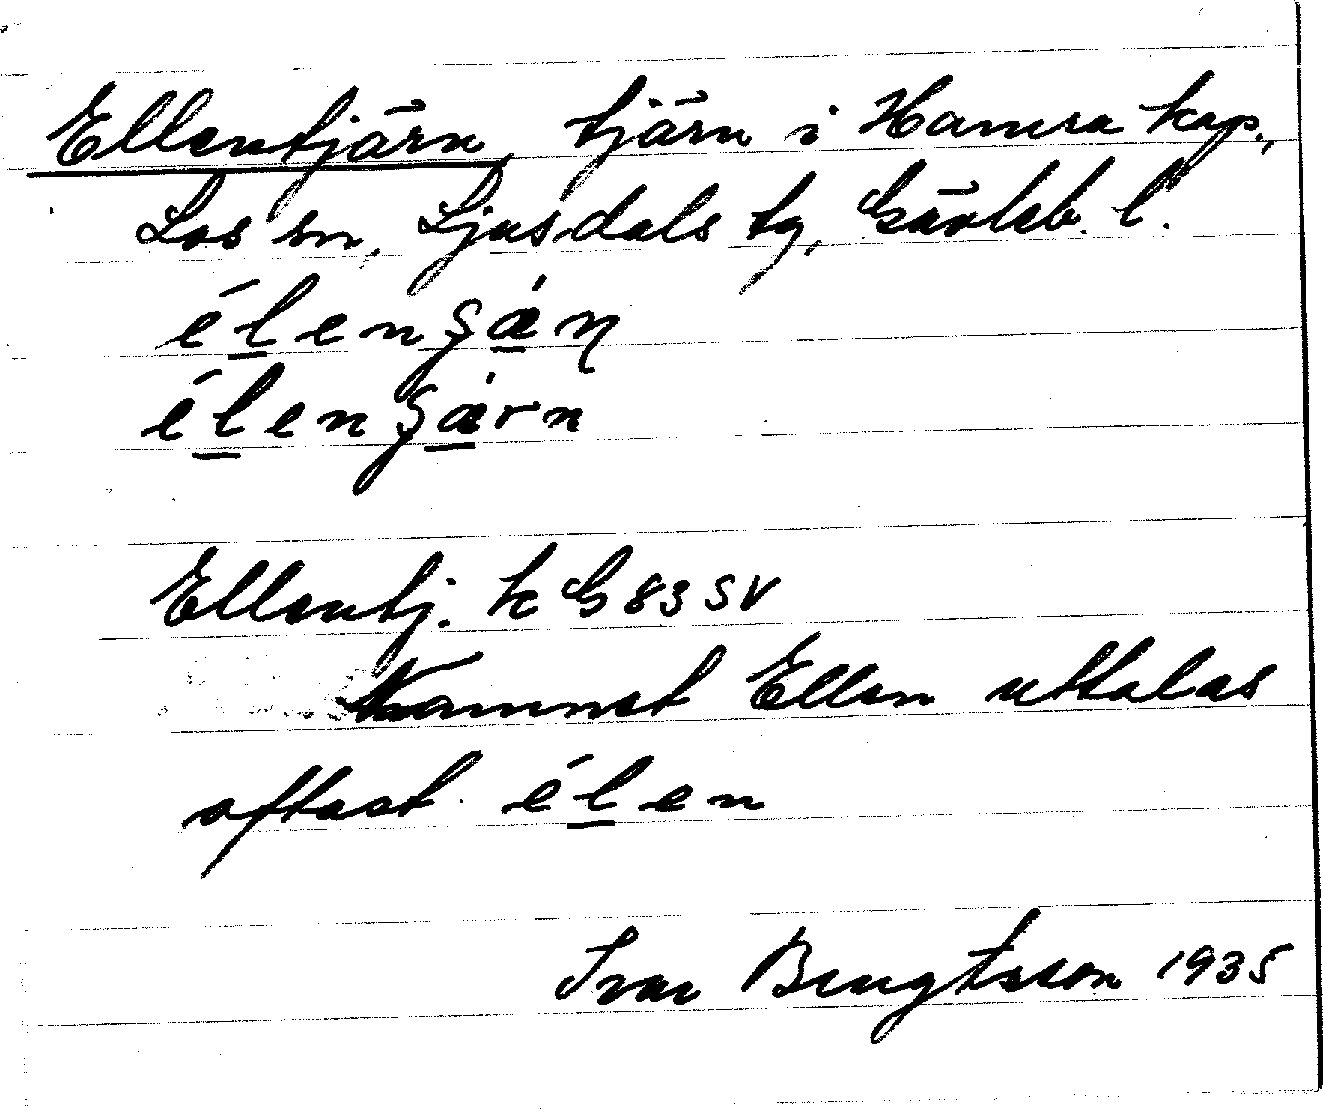 Ellentjärn, tjärn i Hamra kap.,
Los sn, Ljusdals tg, Gävleb. l.
élenʂæ̀ɳ
élenʂæ̀rn
Ellentj. k G 83 SV
Namnet Ellen uttalas
oftast élen
Ivar Bengtsson 1935